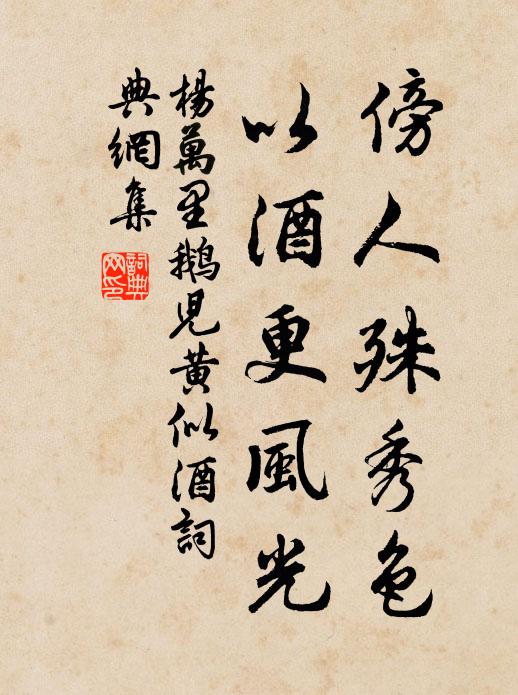 傍人殊秀色
以酒更風光
楊萬里鵝兒黃似酒詞
典網集
詞典
网印